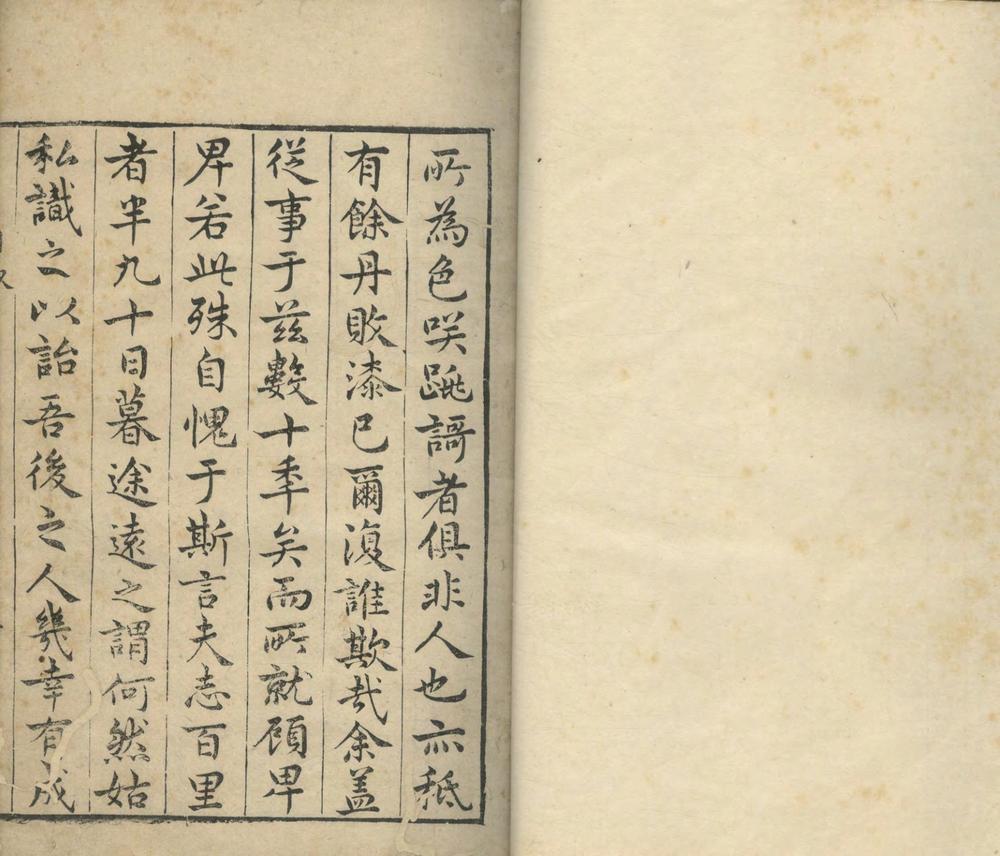 所為色咲跳謌者俱非人也亦秪
有餘丹敗漆已爾復誰欺哉余盖
從事于茲數十秊矣而所就顧卑
卑若此殊自愧于斯言夫志百里
者半九十日暮途遠之謂何然姑
私識之以詒吾後之人幾幸有成